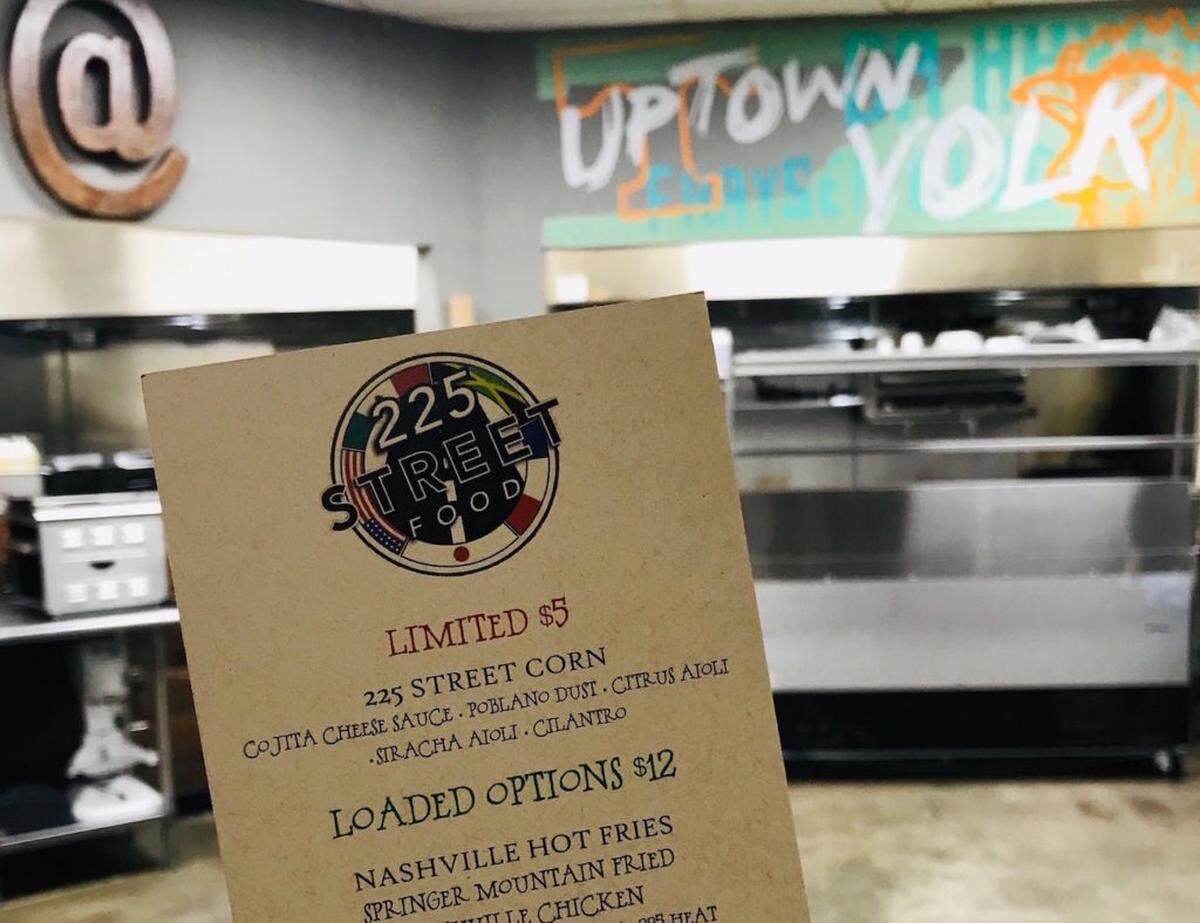 @
UPTOWN
YOLK
225
STREET
FOOD
LIMITED $5
225 STREET CORN
COJITA CHEESE SAUCE · POBLANO DUST · CITRUS AIOLI
· SIRACHA AIOLI · CILANTRO
LOADED OPTIONS $12
NASHVILLE HOT FRIES
SPRINGER MOUNTAIN FRIED
CHICKEN
HEAT